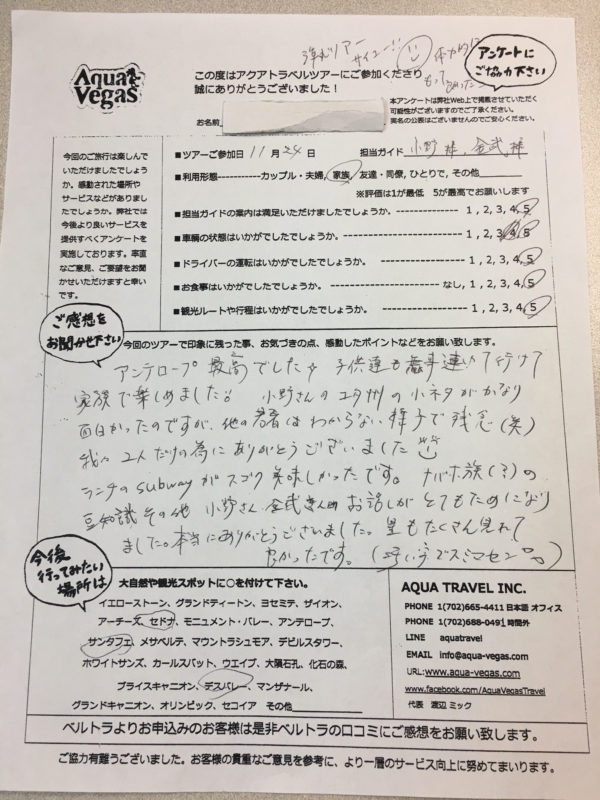 弾丸ツアー
サイコー!!
体力的に
もって良かった
アンケートに
ご協力下さい
Aqua
Vegas
この度はアクアトラベルツアーにご参加くださり
誠にありがとうございました！
本アンケートは弊社Web上で掲載させていただく
可能性がございますのでご了承ください。
実名の公表はございませんのでご安心ください。
お名前
今回のご旅行は楽しんで
いただけましたでしょう
か。感動された場所や
サービスなどがありまし
たでしょうか。弊社では
今後より良いサービスを
提供すべくアンケートを
実施しております。率直
なご意見、ご要望をお聞
かせいただけますと幸い
です。
■ツアーご参加日 11月24日 担当ガイド 小野様、金武様
■利用形態-----------カップル・夫婦, 家族, 友達・同僚, ひとりで, その他
※評価は1が最低 5が最高でお願いします
■担当ガイドの案内は満足いただけましたでしょうか。---------------- 1, 2, 3, 4, 5
■車輌の状態はいかがでしたでしょうか。------------------ 1, 2, 3, 4, 5
■ドライバーの運転はいかがでしたでしょうか。---------------- 1, 2, 3, 4, 5
■お食事はいかがでしたでしょうか。------------------ なし, 1, 2, 3, 4, 5
■観光ルートや行程はいかがでしたでしょうか。---------------- 1, 2, 3, 4, 5
ご感想を
お聞かせ下さい
今回のツアーで印象に残った事、お気づきの点、感動したポイントなどをお願い致します。
アンテロープ 最高でした☆ 子供達も 連れて行けて
家族で楽しめました。 小野さんのユタ州の小ネタがかなり
面白かったのですが、他の若者はわからない様子で残念(笑)
我々2人だけの為にありがとうございました
ランチのsubwayがスゴク美味しかったです。 ナバホ族(?)の
豆知識その他 小野さん・金武さんの お話しが とてもためになり
ました。本当にありがとうございました。星もたくさん見れて
良かったです。 (汚い字でスミマセン
今後
行ってみたい
場所は
大自然や観光スポットに○を付けて下さい。
イエローストーン、グランドティートン、ヨセミテ、ザイオン、
アーチーズ、セドナ、モニュメント・バレー、アンテロープ、
サンタフェ、メサベルテ、マウントラシュモア、デビルスタワー、
ホワイトサンズ、カールスバット、ウエイブ、大隕石孔、化石の森、
ブライスキャニオン、デスバレー、マンザナール、
グランドキャニオン、オリンピック、セコイア その他
AQUA TRAVEL INC.
PHONE 1(702)665-4411 日本語 オフィス
PHONE 1(702)688-0491 時間外
LINE aquatravel
EMAIL info@aqua-vegas.com
URL:www.aqua-vegas.com
www.facebook.com/AquaVegasTravel
代表 渡辺 ミック
ベルトラよりお申込みのお客様は是非ベルトラの口コミにご感想をお願い致します。
ご協力有難うございました。お客様の貴重なご意見を参考に、より一層のサービス向上に努めてまいります。